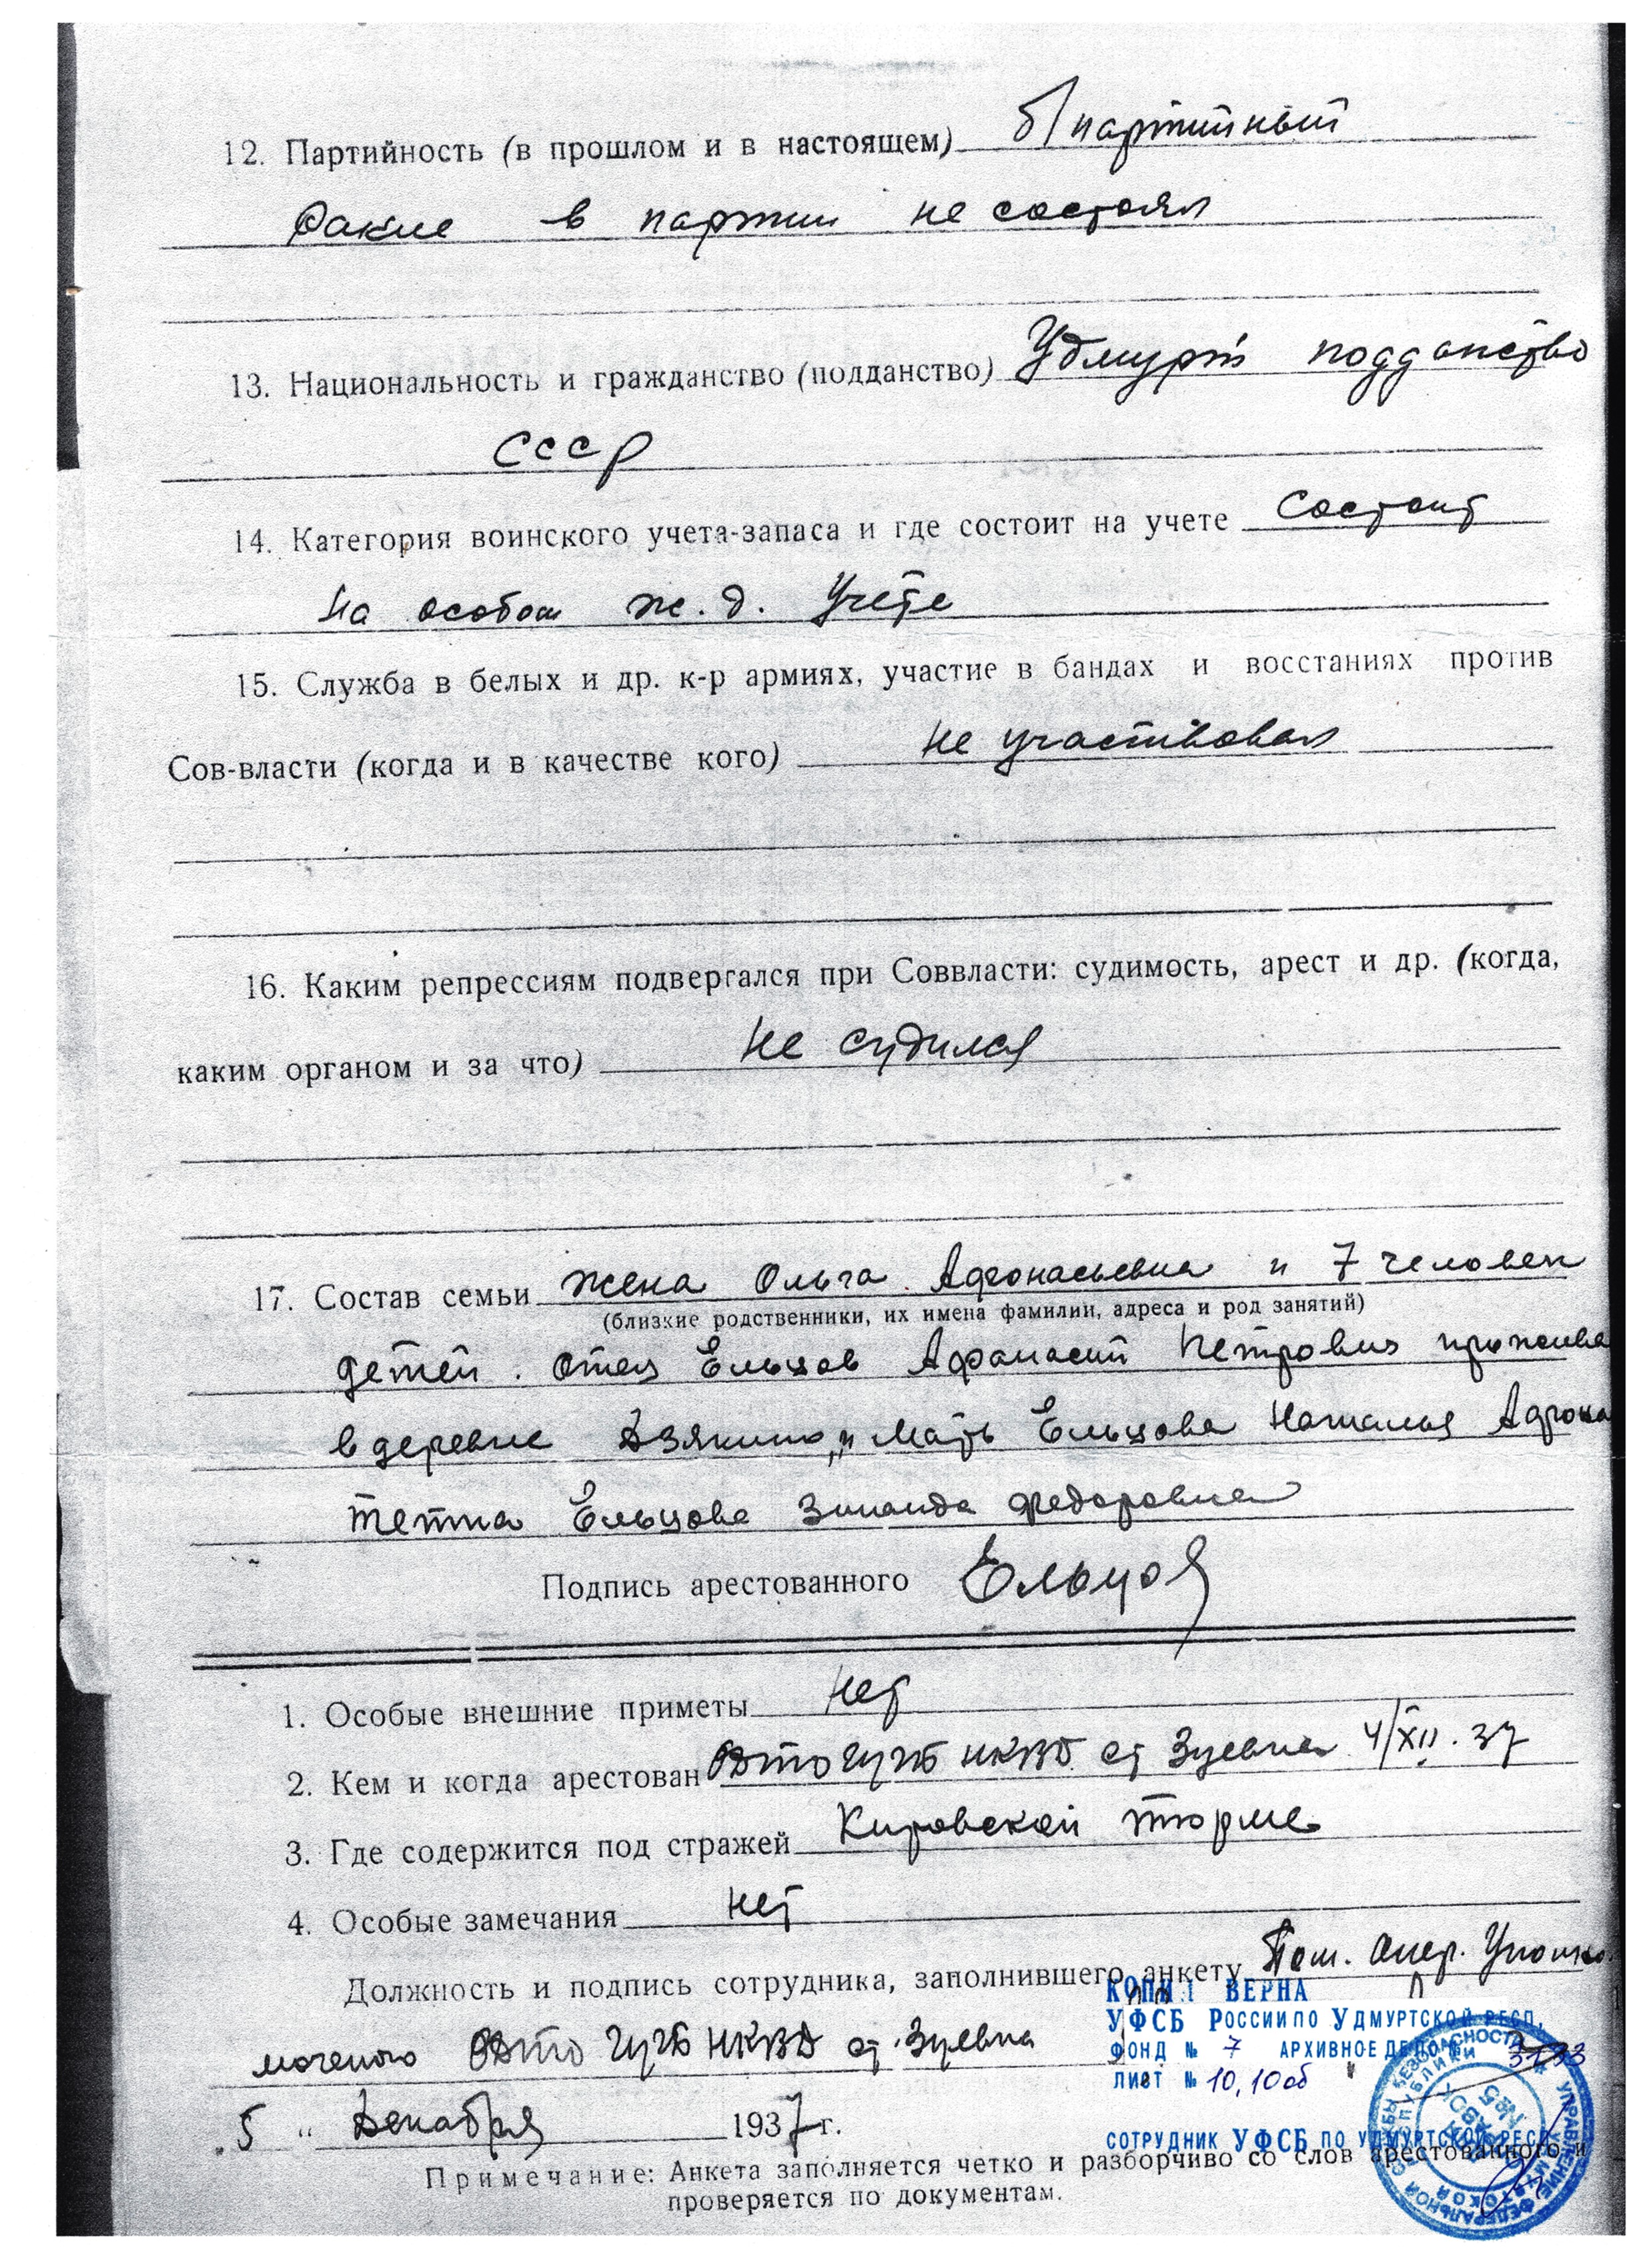 12. Партийность (в прошлом и в настоящем) б/партийный
в партии не состоял
13. Национальность и гражданство (подданство) Удмурт подданство
СССР
14. Категория воинского учета-запаса и где состоит на учете Состоит
на особом ж.д. учете
15. Служба в белых и др. к-р армиях, участие в бандах и восстаниях против
Сов-власти (когда и в качестве кого) не участвовал
16. Каким репрессиям подвергался при Соввласти: судимость, арест и др. (когда,
каким органом и за что) не судился
17. Состав семьи жена Ольга Афонасьевна и 7 человек
(близкие родственники, их имена фамилии, адреса и род занятий)
детей. Отец Ельцов Афанасий Петрович прожива
в деревне Дзякино, и мать Ельцова Наталья Афона
тетка Ельцова Зинаида Федоровна
Подпись арестованного Ельцов
1. Особые внешние приметы нет
2. Кем и когда арестован ОДТО ГУГБ НКВД ст Зуевка 4/XII.37
3. Где содержится под стражей Кировской тюрме
4. Особые замечания нет
Должность и подпись сотрудника, заполнившего анкету Пом. опер. Уполно
моченого ОДТО ГУГБ НКВД ст. Зуевка
КОПИЯ ВЕРНА
УФСБ РОССИИ ПО УДМУРТСКОЙ РЕСП.
ФОНД № 7 АРХИВНОЕ ДЕЛО №
ЛИСТ № 10, 10об
5 " Декабря 1937 г.
СОТРУДНИК УФСБ ПО УДМУРТСКОЙ РЕСП
Примечание: Анкета заполняется четко и разборчиво со слов арестованного и
проверяется по документам.